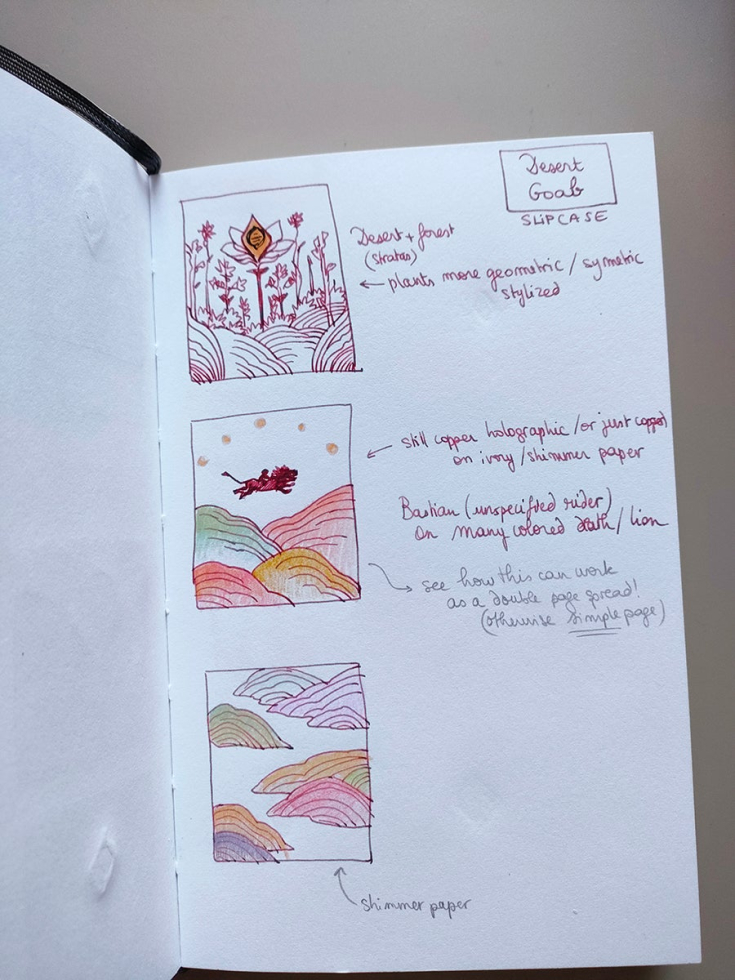 Desert
Goab
SLIPCASE
Desert + forest
(stratas)
plants more geometric / symetric
stylized
still copper holographic / or just copper)
on ivory / shimmer paper
Bastian (unspecified rider)
on many colored death / lion
see how this can work
as a double page spread!
(otherwise simple page)
shimmer paper